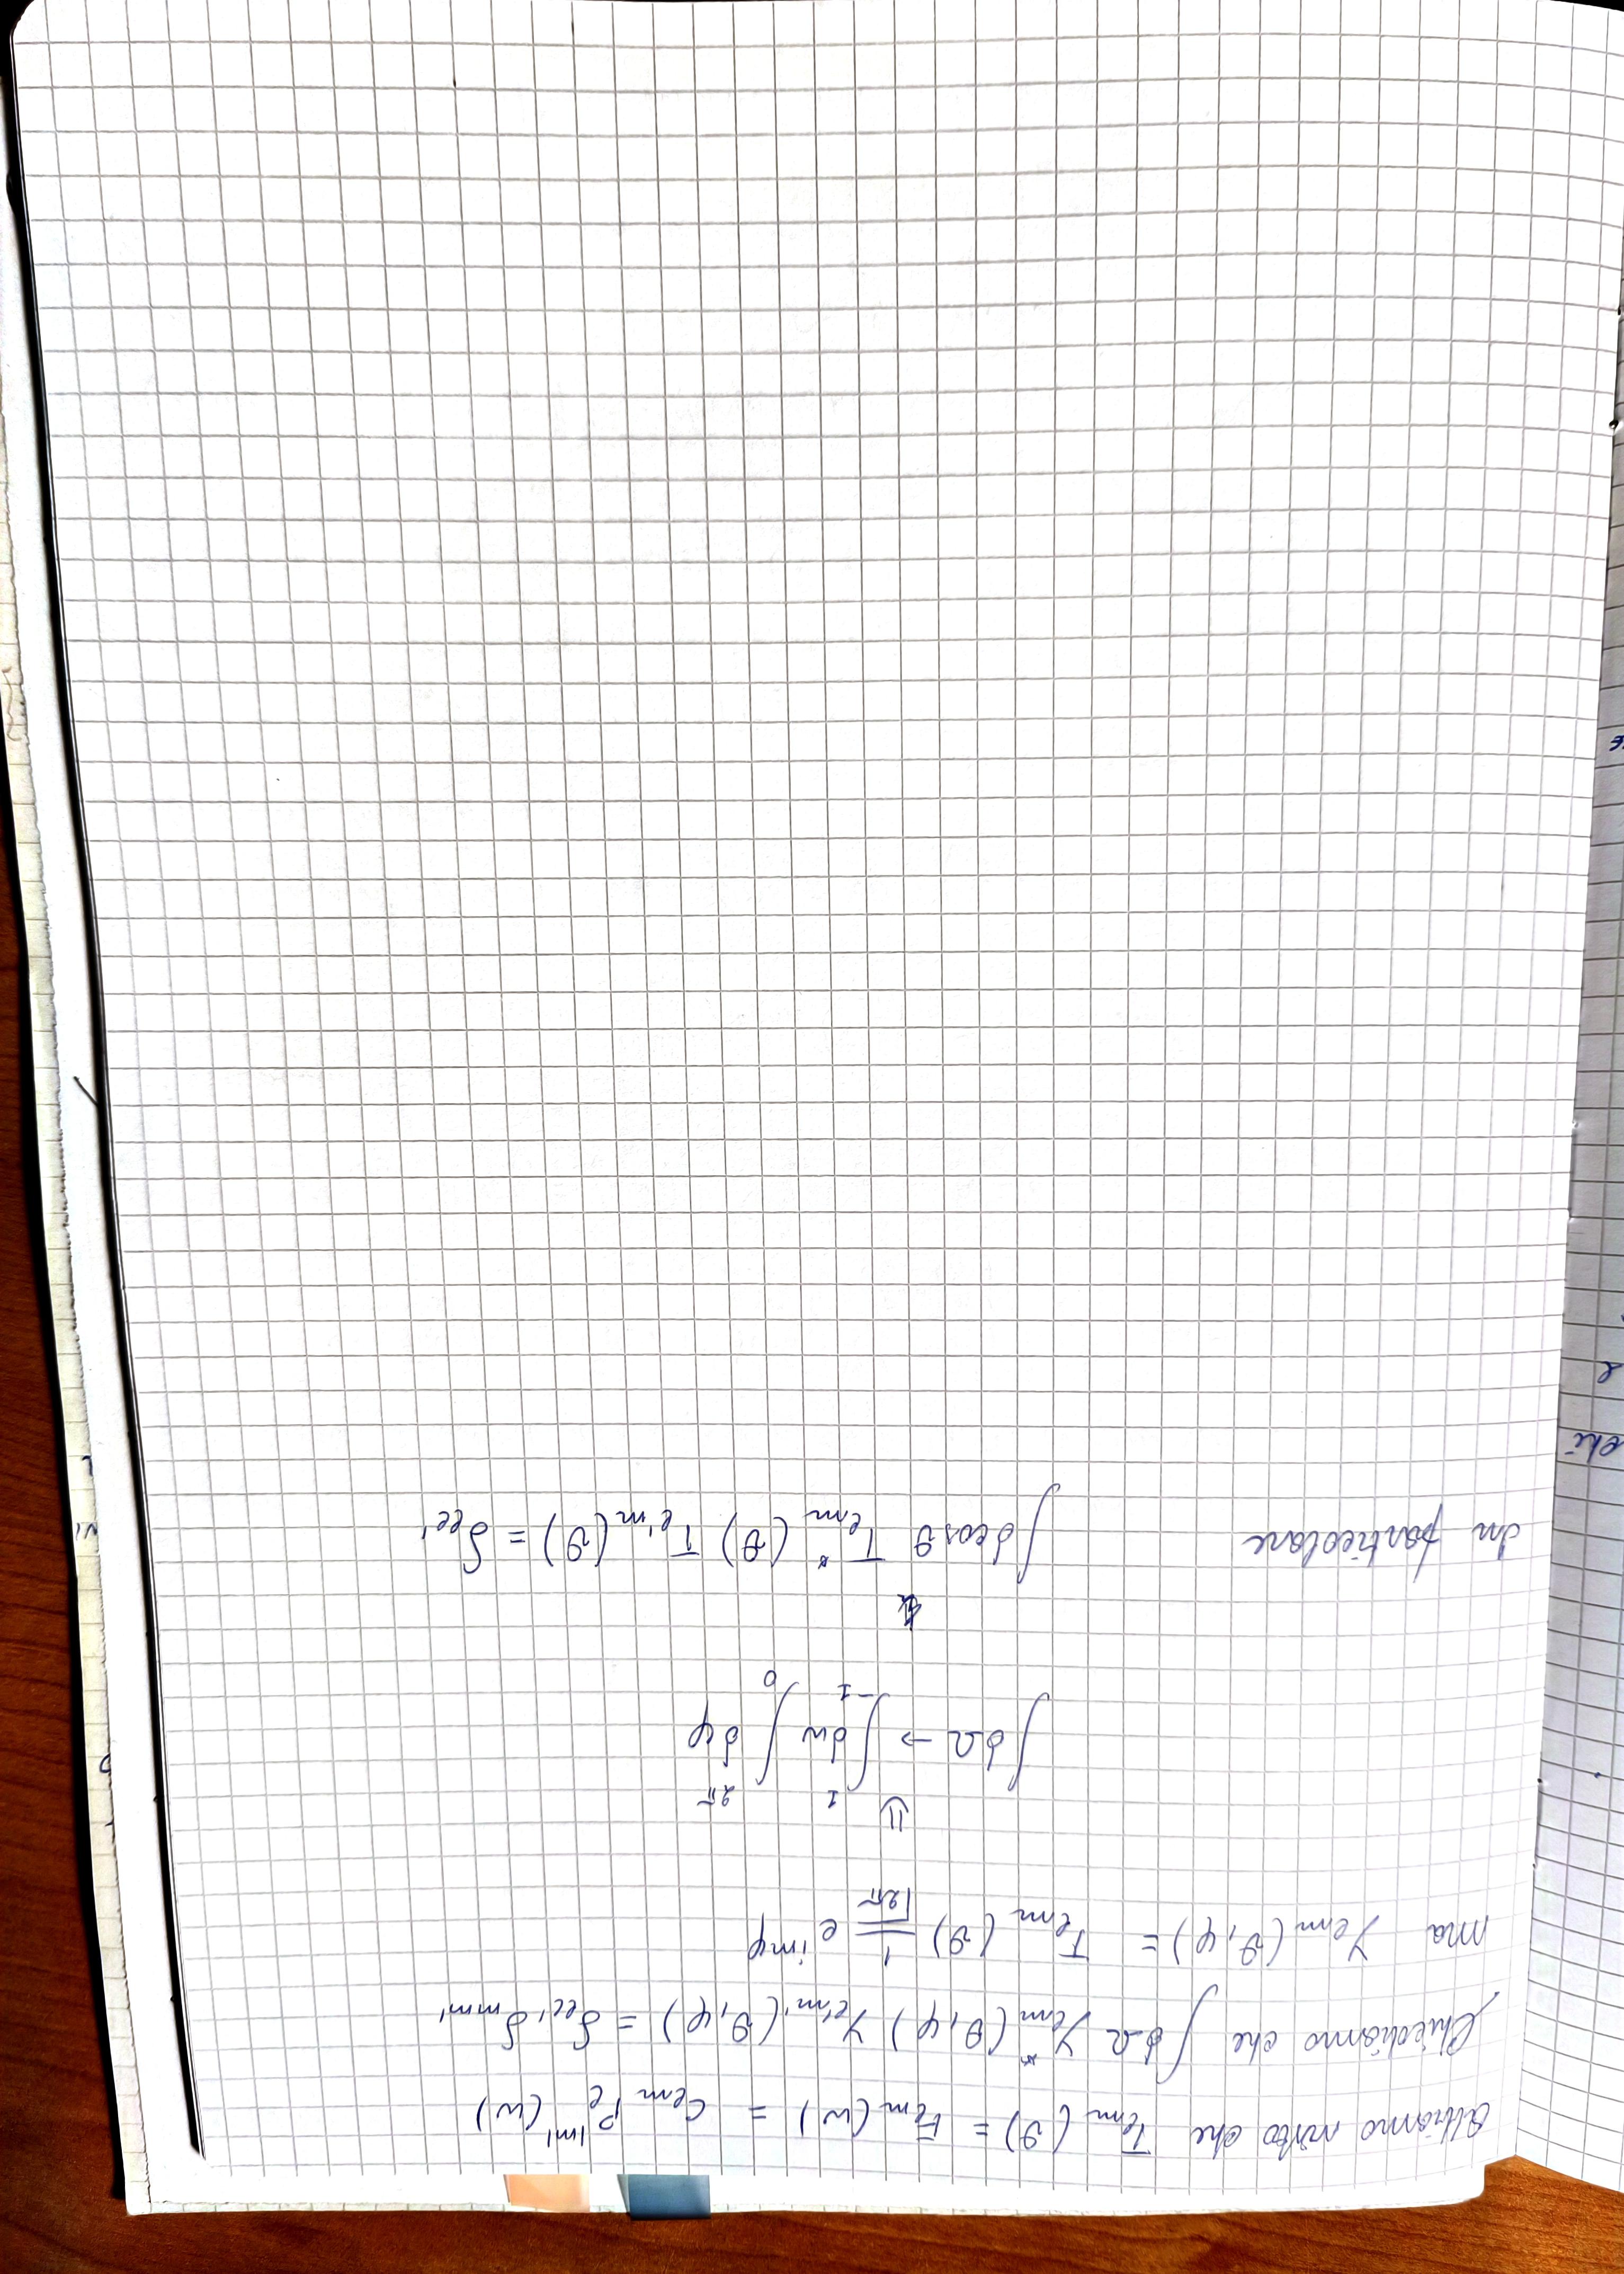 Abbiamo visto che T_{ℓm}(ϑ) = F_{ℓm}(w) = C_{ℓm} P_ℓ^{|m|}(w)
Chiediamo che ∫dΩ Y*_{ℓm}(θ,φ) Y_{ℓ'm'}(θ,φ) = δ_{ℓℓ'} δ_{mm'}
ma Y_{ℓm}(ϑ,φ) = T_{ℓm}(ϑ) 1/√2π e^{imφ}
⇓
∫dΩ → ∫_{-1}^{1} dw ∫_0^{2π} dφ
In particolare ∫dcosϑ T*_{ℓm}(θ) T_{ℓ'm}(ϑ) = δ_{ℓℓ'}
che
e